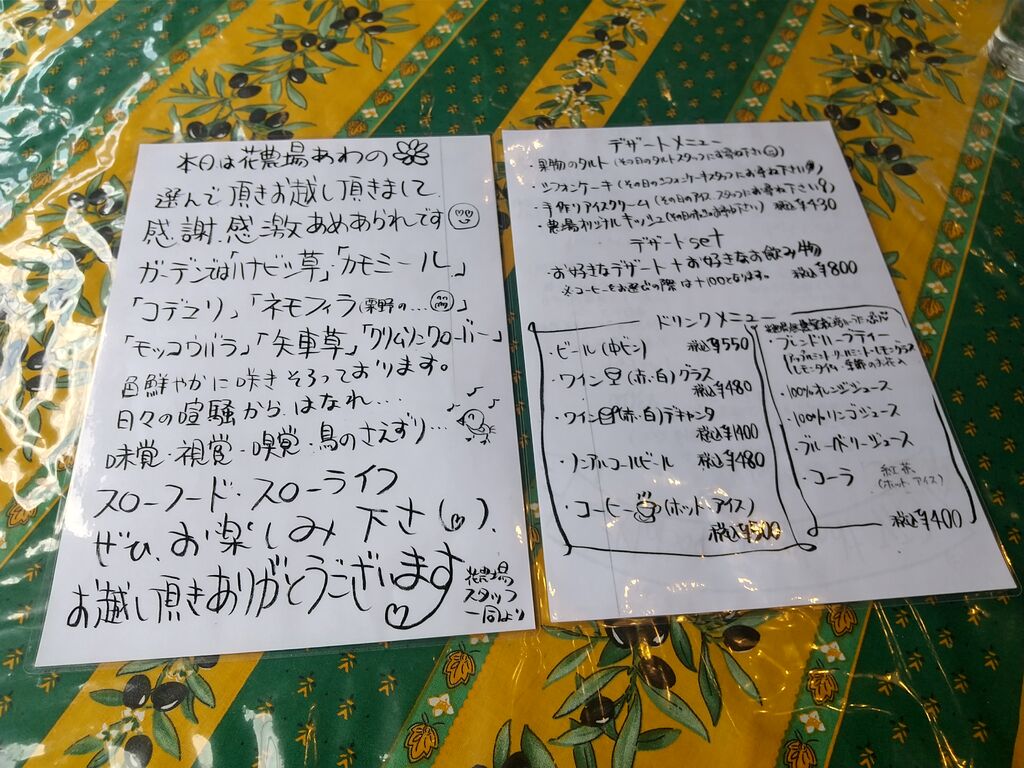 本日は花農場あわの
選んで頂きお越し頂きまして
感謝感激あめあられです
ガーデンでは「ハナビシ草」「カモミール」
「コデマリ」「ネモフィラ(粟野の…)」
「モッコウバラ」「矢車草」「クリムソンクローバー」
色鮮やかに咲きそろっております。
日々の喧騒から、はなれ…
味覚・視覚・嗅覚・鳥のさえずり…
スローフード・スローライフ
ぜひ、お楽しみ下さい。
お越し頂きありがとうございます
花農場
スタッフ
一同より
デザートメニュー
・果物のタルト(その日のタルトスタッフにお尋ね下さい)
・シフォンケーキ(その日のシフォンケーキスタッフにお尋ね下さい)
・手作りアイスクリーム(その日のアイス スタッフにお尋ね下さい)
・農場オリジナルキッシュ(その日の お尋ね下さい) 税込¥430
デザートset
・お好きなデザート+お好きなお飲み物
※コーヒーをお選びの際は+100となります。 税込¥800
ドリンクメニュー
・ビール(中ビン) 税込¥550
・ワイン(赤・白)グラス
税込¥480
・ワイン(赤・白)デキャンタ
税込¥1400
・ノンアルコールビール 税込¥480
・コーヒー(ホット・アイス)
税込¥500
・ブレンドハーブティー
(アップルミント・スペアミント・レモングラス
レモンタイム・季節の
・100%オレンジジュース
・100%リンゴジュース
・ブルーベリージュース
・コーラ 紅茶
(ホット、アイス)
税込¥400